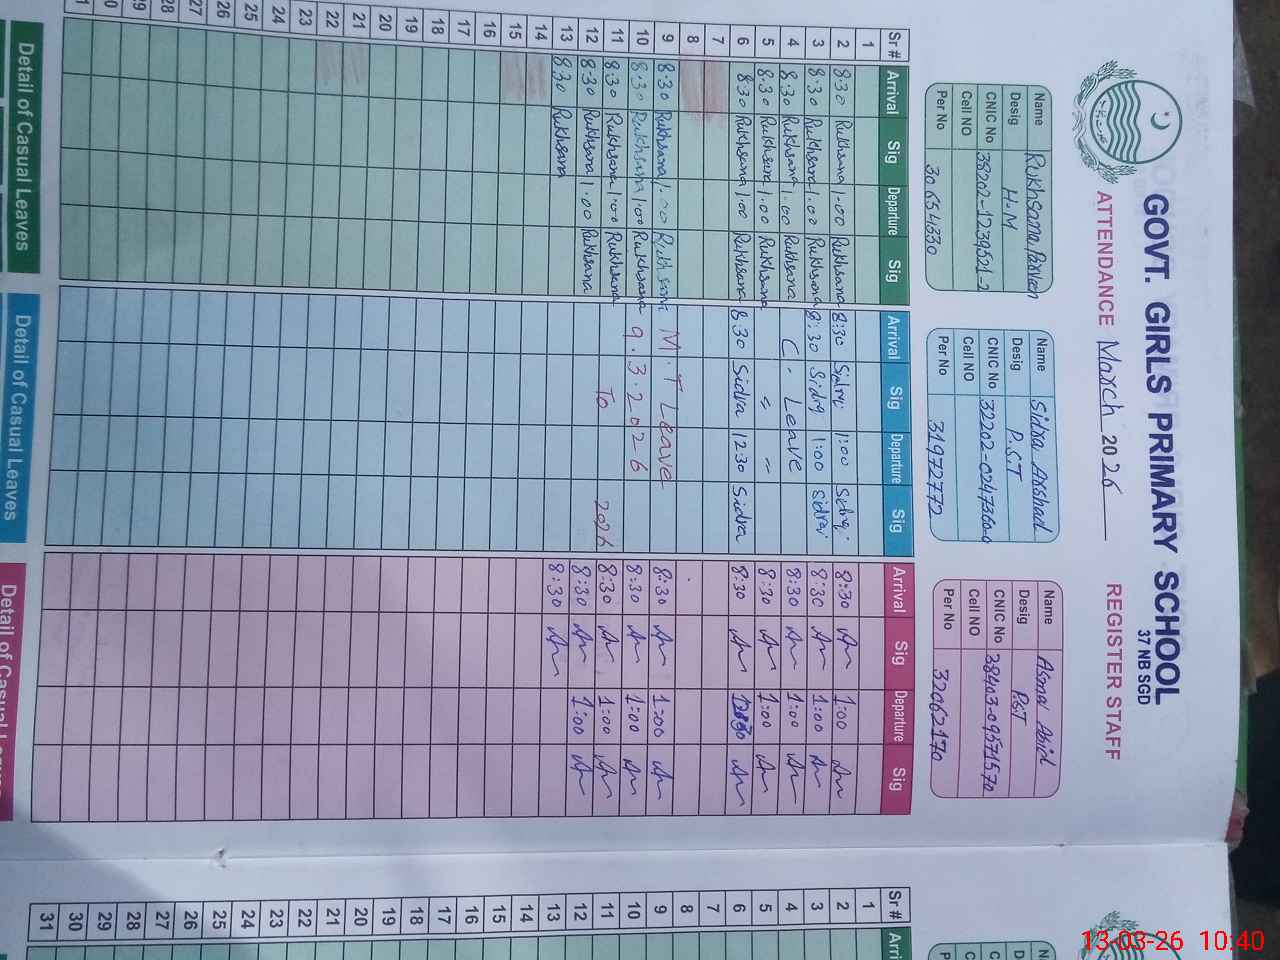 GOVT. GIRLS PRIMARY SCHOOL
37 NB SGD
ATTENDANCE March 2026 REGISTER STAFF
Name Rukhsana Parveen
Desig H.M
CNIC No 38202-1239521-2
Cell NO
Per No 30654330
Name Sidra Arshad
Desig P.S.T
CNIC No 32202-0247360-0
Cell NO
Per No 31972772
Name Asma Abid
Desig P.S.T
CNIC No 38403-0957157-0
Cell NO
Per No 32062170
Sr# Arrival Sig Departure Sig Arrival Sig Departure Sig Arrival Sig Departure Sig
1
2 8:30 Rukhsana 1:00 Rukhsana 8:30 Sidra 1:00 Sidra 8:30 1:00
3 8:30 Rukhsana 1:00 Rukhsana 8:30 Sidra 1:00 Sidra 8:30 1:00
4 8:30 Rukhsana 1:00 Rukhsana C. Leave 8:30 1:00
5 8:30 Rukhsana 1:00 Rukhsana " " 8:30 1:00
6 8:30 Rukhsana 1:00 Rukhsana 8:30 Sidra 12:30 Sidra 8:30
7
8
9 8:30 Rukhsana 1:00 Rukhsana M.T Leave 8:30 1:00
10 8:30 Rukhsana 1:00 Rukhsana 9.3.2026 8:30 1:00
11 8:30 Rukhsana 1:00 Rukhsana To 2026 8:30 1:00
12 8:30 Rukhsana 1:00 Rukhsana 8:30 1:00
13 8:30 Rukhsana 8:30
14
15
16
17
18
19
20
21
22
23
24
25
26
27
28
29
Detail of Casual Leaves
Detail of Casual Leaves
Detail of Casual Leaves
Sr#
1
2
3
4
5
6
7
8
9
10
11
12
13
14
15
16
17
18
19
20
21
22
23
24
25
26
27
28
29
30
31
13-03-26 10:40